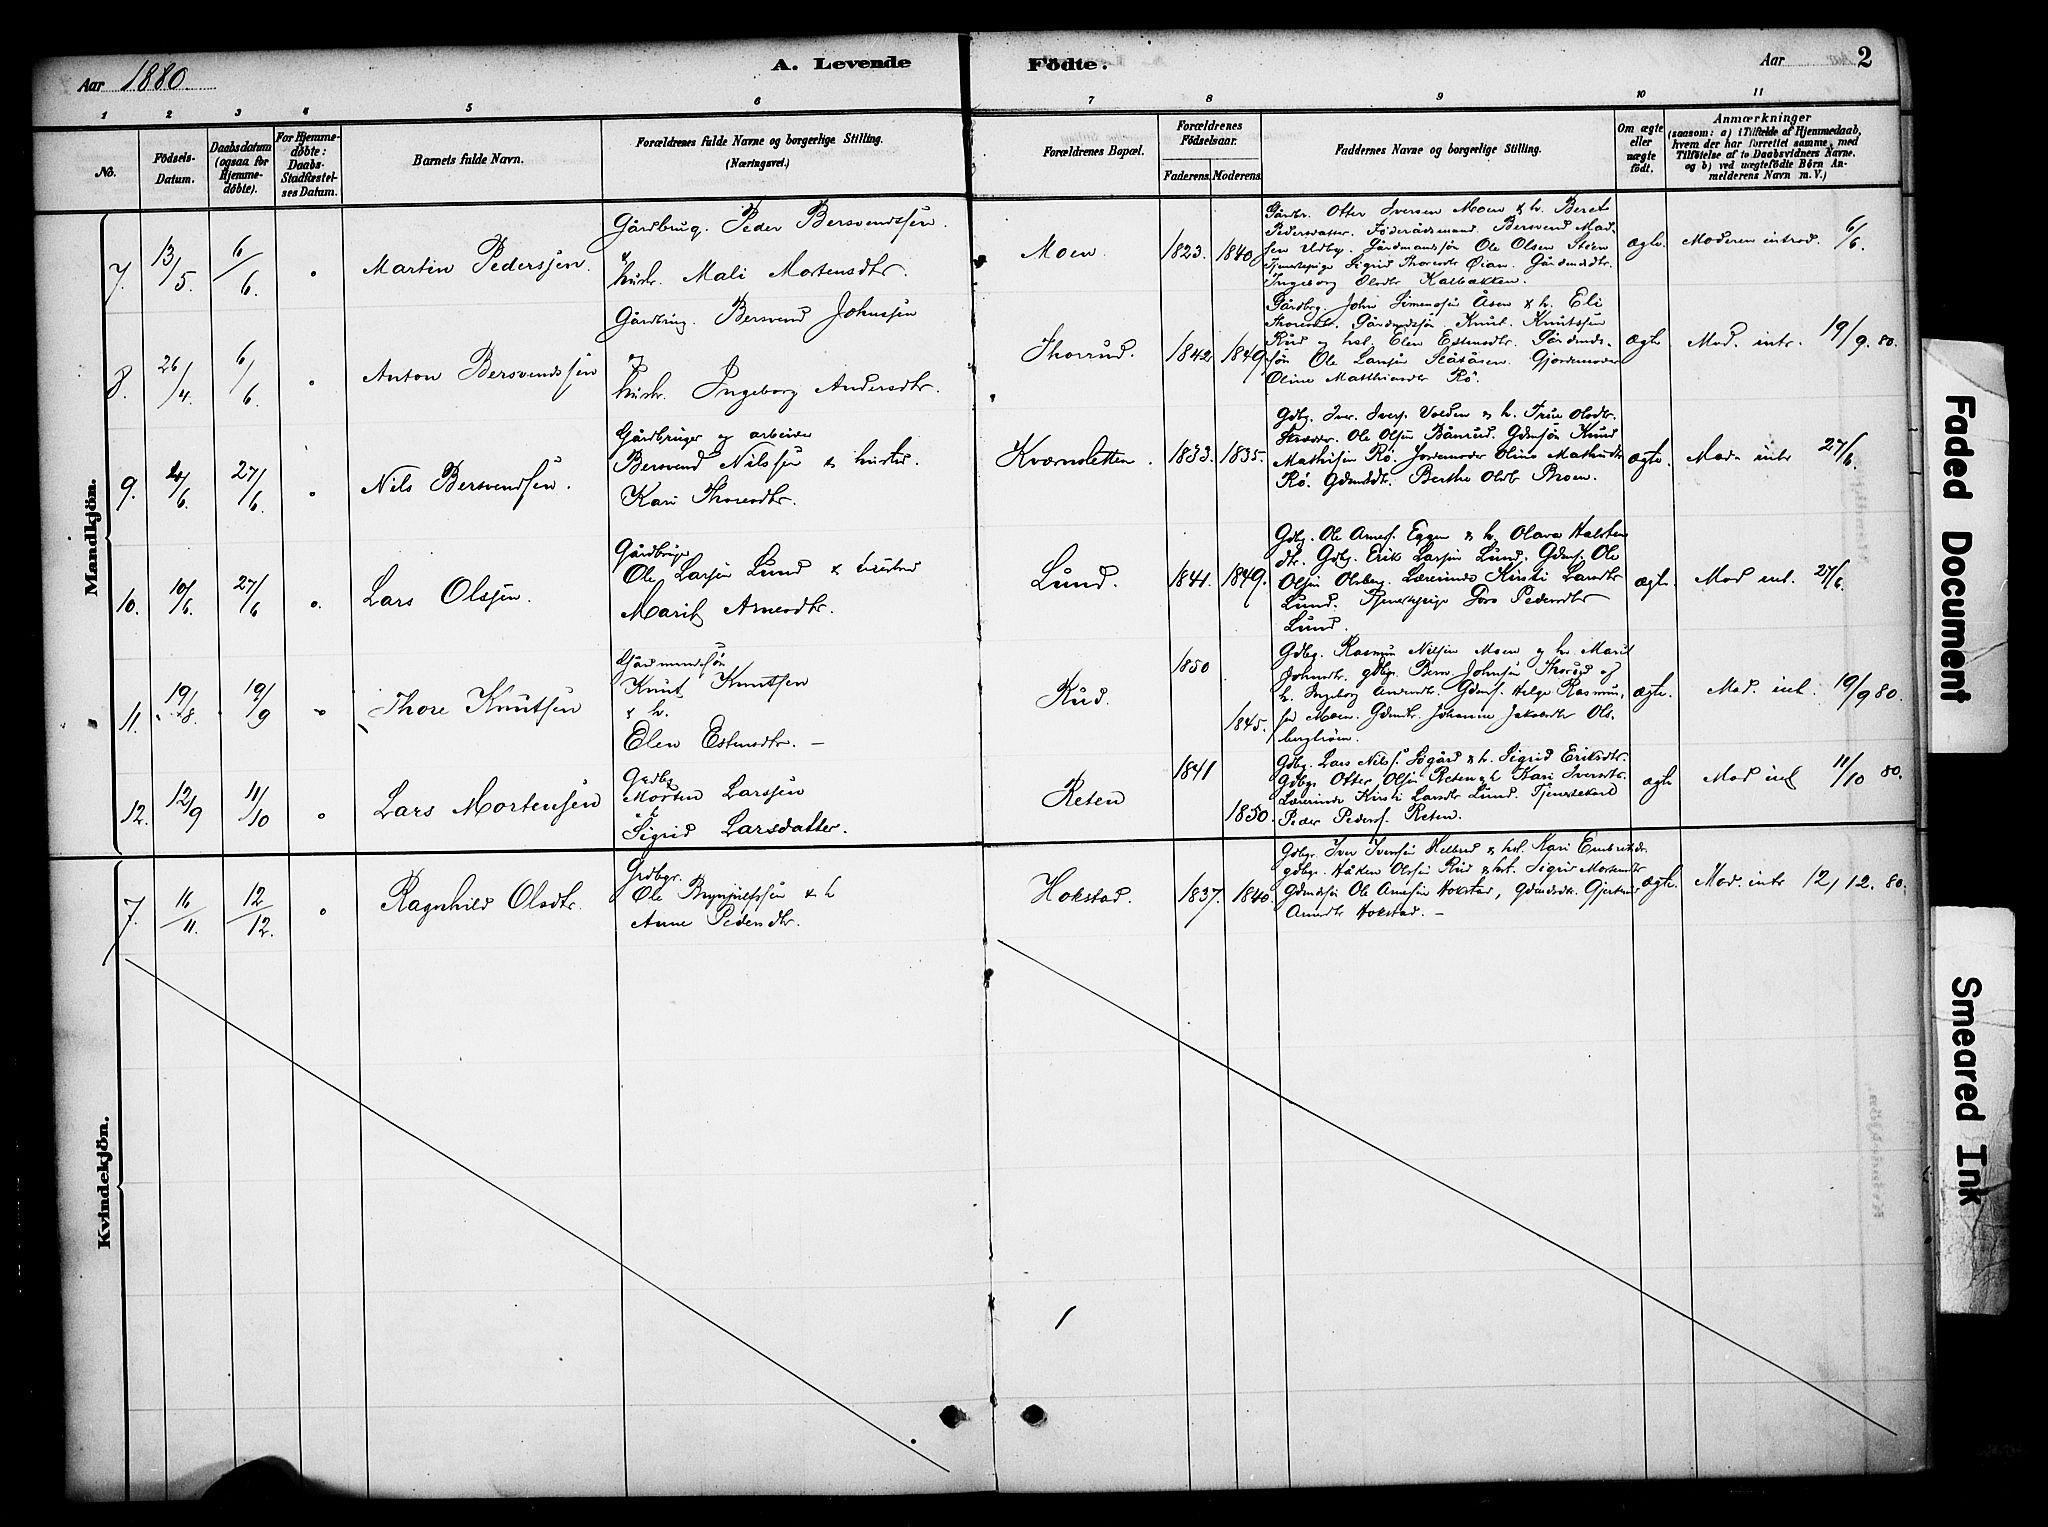 Aar 1880.
A. Levende Födte.
Aar 2
1 2 3 4 5 6 7 8 9 10 11
No.
Födsels-
Datum.
Daabsdatum
(ogsaa for
Hjemme-
döbte).
For Hjemme-
döbte:
Daabs-
Stadfæstel-
ses Datum.
Barnets fulde Navn.
Forældrenes fulde Navne og borgerlige Stilling.
(Næringsvei.)
Forældrenes Bopæl.
Forældrenes
Födselsaar.
Faderens. Moderens.
Faddernes Navne og borgerlige Stilling.
Om ægte
eller
uægte
födt.
Anmærkninger
(saasom: a) i Tilfælde af Hjemmedaab,
hvem der har forrettet samme, med
Tilföielse af to Daabsvidners Navne,
og b) ved uægtefödte Börn An-
melderens Navn m. V.)
Mandkjön.
7. 13/5. 6/6. Martin Pederssen.
Gårdbrug. Peder Bersvendssen.
&
hustr. Mali Mortensdtr.
Moen. 1823. 1840.
Gårdbr. Otter Iversen Moen & h. Beret
Pedersdatter. Föderådsmand. Bersvend Mad-
sen Udby. Gårdmandssön Ole Olsen Skien
Tjenestepige Sigrid Thoresdtr Öian. Gårdmdsdtr.
Ingeborg Olsdtr Kalbakken.
ægte. Moderen introd. 6/6.
8. 26/4. 6/6. Anton Bersvendssen
Gårdbrug. Bersvend Johnssen
&
hustr. Ingeborg Andersdtr.
Thorrud. 1842. 1849.
Gårdbrg. John Simenssen Åsen & h. Eli
Thoresdtr. Gårdmdssön Knut Knutssen
Rud og hst. Elen Estensdtr. Gårdmds-
sön Ole Larssen Slåtåsen. Gjordemoder
Oline Matthiasdtr Rö.
ægte Mod. intr. 19/9. 80.
9. 27/6. Nils Bersvendsen.
Gårdbruger og arbeider
Bersvend Nilssen & hustru
Kari Thoresdtr.
Kværnsletten. 1833. 1835.
Gdbg. Iver Ivers. Volden & h. Olsdtr.
Ole Olsen Bånrud. Gdmsön Knud
Mathisen Rö. Jordemoder Oline Mathisdtr
Rö. Gdmsdtr. Berthe Olsdtr Broen.
ægte. Mod. intr 27/6.
10. 10/6. 27/6. Lars Olssen.
Gårdbruger
Ole Larsen Lund & hustru
Marit Arnesdtr.
Lund. 1841. 1849.
Gdbg. Ole Arnes. Eggen & h. Olava Halsten
dtr. Gdbg. Erik Larsen Lund. Gdms. Ole
Olsen Olsberg. Lærerinde Kirsti Larsdtr
Lund. Tjenestepige Goro Pedersdtr
Lund.
ægte. Mod int. 27/6.
11. 19/8. 19/9 Thore Knutsen
Gårdmandssön
Knut Knutsen
& h.
Elen Estensdtr. —
Rud. 1850 1845.
Gdbg. Rasmus Nilsen Moen og h. Marit
Johnsdtr. gdbgr. Bersv Johnsen Thorud og
h. Ingeborg Andersdtr. Gdms. Helge Rasmus-
sen Moen. Gdmdtr. Johanne Jakobsdtr Ols-
bergtröen.
ægte. Mod. int. 19/9 80.
12. 12/9 11/10 Lars Mortensen
Grdbg
Morten Larssen
&
Sigrid Larsdatter.
Reten 1841 1850.
Gdbg. Lars Nilss. Sögård & h. Sigrid Eriksdtr.
Gdbgr Otter Olsen Reten & h Kari Iversdtr.
Lærerinde Kirsti Larsdtr Lund. Tjenestekarl
Peder Peders. Reten.
ægte Mod int 11/10 80.
Kvindekjön.
7. 16/11. 12/12. Ragnhild Olsdtr.
Grdbgr.
Ole Brynjulfssen & h
Anne Pedersdtr.
Hokstad. 1837. 1840.
Gdbgr. Iver Iversen Helbred & hst. Kari Embretsdtr.
gdbgr. Håken Olsen Rud & hst. Sigrid Mortensdtr
Gdmdssön Ole Arnesen Hokstad, Gdmdsdtr. Gjertrud
Arnesdtr Hokstad. —
ægte. Mod. intr 12/12. 80.
Faded Document
Smeared Ink